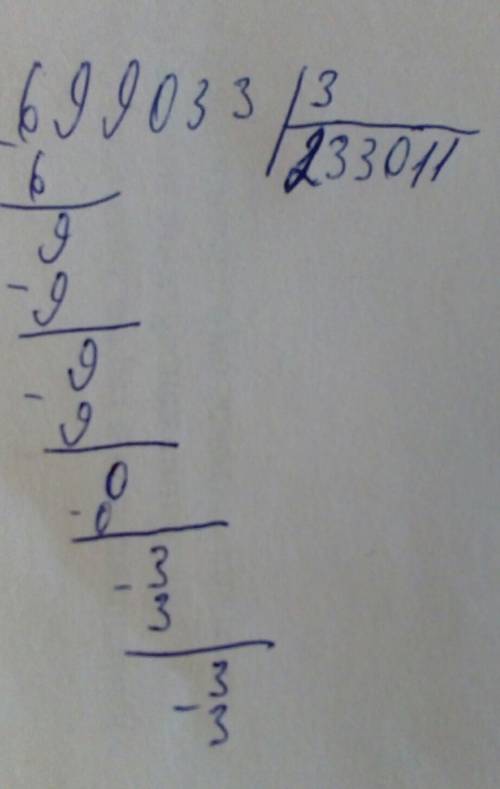 699033 3
233011
- 6
9
- 9
9
- 9
0
- 0
3
- 3
3
- 3